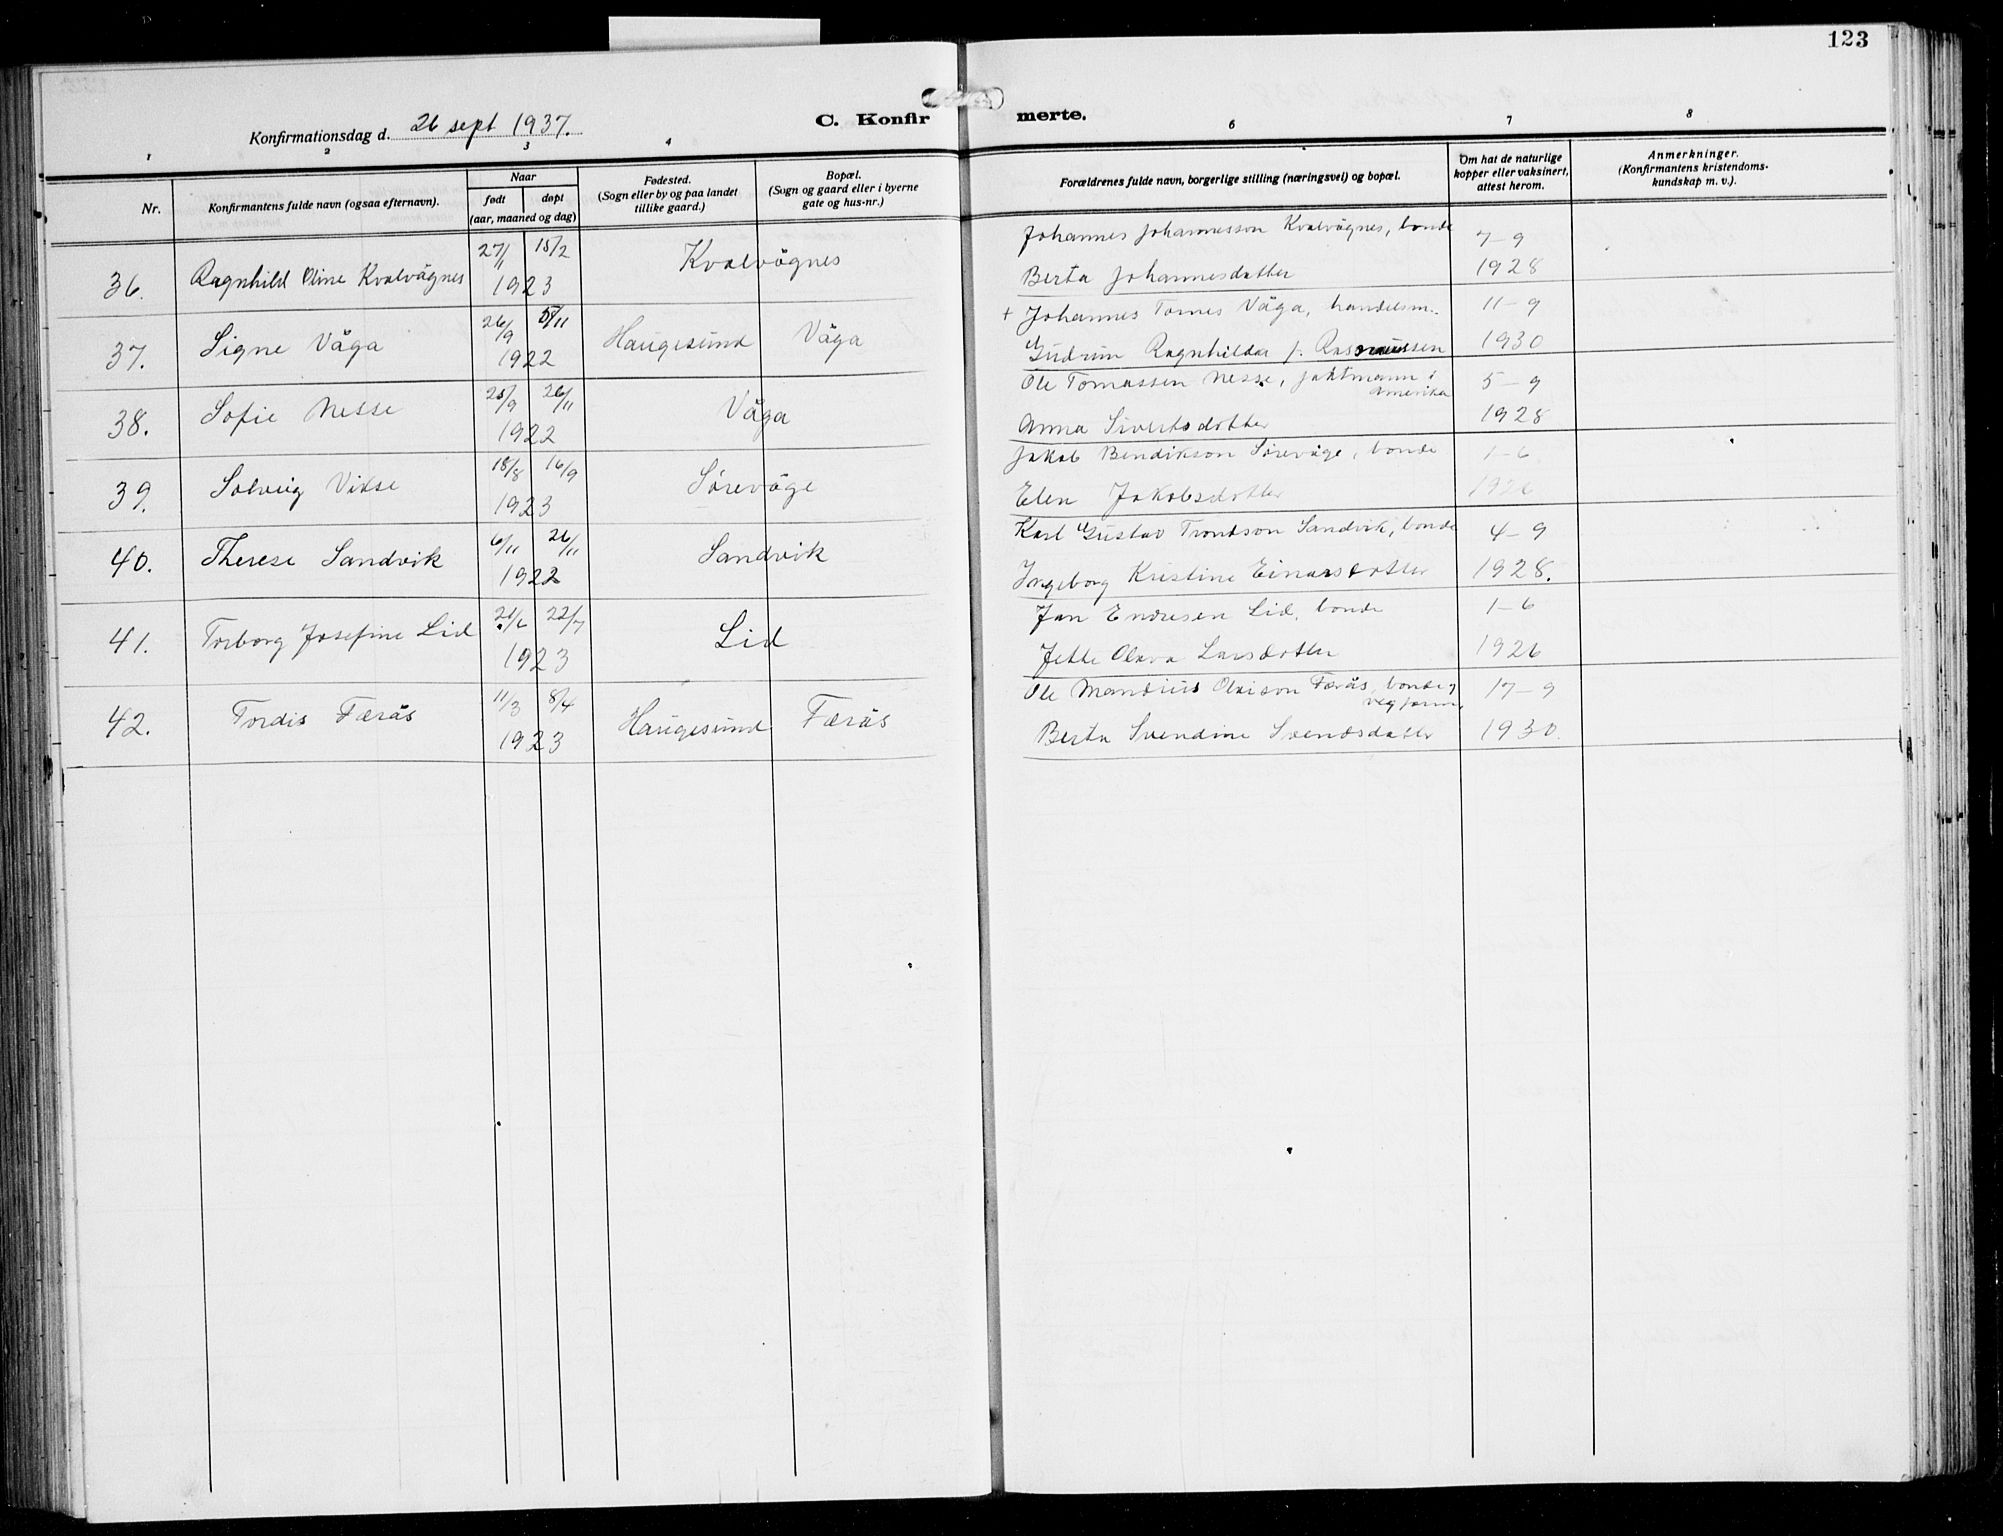 123
Konfirmationsdag d. 26 sept 1937.
C. Konfirmerte.
1 2 3 4 6 7 8
Nr.
Konfirmantens fulde navn (ogsaa efternavn).
Naar
født døpt
(aar, maaned og dag)
Fødested.
(Sogn eller by og paa landet
tillike gaard.)
Bopæl.
(Sogn og gaard eller i byerne
gate og hus-nr.)
Forældrenes fulde navn, borgerlige stilling (næringsvei) og bopæl.
Om hat de naturlige
kopper eller vaksinert,
attest herom.
Anmerkninger.
(Konfirmantens kristendoms-
kundskap m. v.).
36. Ragnhild Oline Kvalvågnes 27/11 15/2 1923 Kvalvågnes
Johannes Johannesson Kvalvågnes, bonde 7-9
Berta Johannesdatter 1928
37. Signe Våga 26/9 5/11 1922 Haugesund Våga
+ Johannes Tornes Våga, handelsm. 11-9
Gudrun Ragnhilda f. Rasmussen 1930
38. Sofie Nesse 25/9 26/11 1922 Våga
Ole Tomassen Nesse, jaktmann i Amerika 5-9
Anna Sivertsdotter 1928
39. Solveig Vikse 18/8 16/9 1923 Sørevåge
Jakob Bendikson Sørevåge, bonde 1-6
Elen Jakobsdotter 1926
40. Therese Sandvik 6/11 26/11 1922 Sandvik
Karl Gustav Trondson Sandvik, bonde 4-9
Ingeborg Kristine Einarsdotter 1928.
41. Torborg Josefine Lid 21/6 22/7 1923 Lid
Jan Endresen Lid, bonde 1-6
Jette Olava Larsdotter 1926
42. Tordis Færås 11/3 8/4 1923 Haugesund Færås
Ole Mandius Olaison Færås, bonde, vegform. 17-9
Berta Svendine Svendsdatter 1930.